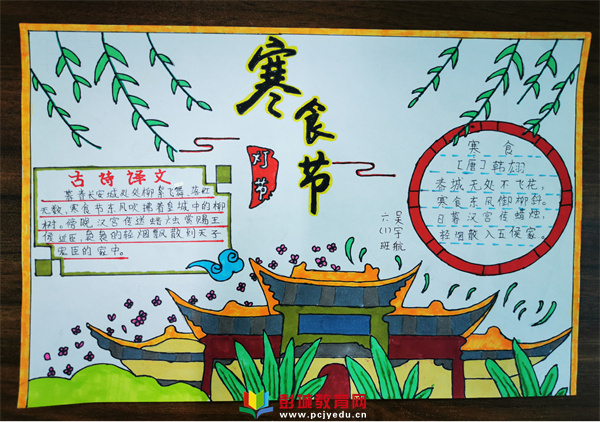 寒食节
灯节
古诗译文
暮春长安城处处柳絮飞舞、落红
无数,寒食节东风吹拂着皇城中的柳
树。傍晚,汉宫传送蜡烛赏赐王
侯近臣,袅袅的轻烟飘散到天子
宠臣的家中。
寒食
[唐]韩翃
春城无处不飞花,
寒食东风御柳斜。
日暮汉宫传蜡烛,
轻烟散入五侯家。
六(1)班
吴宇航
彭城教育网
www.pcjyedu.cn